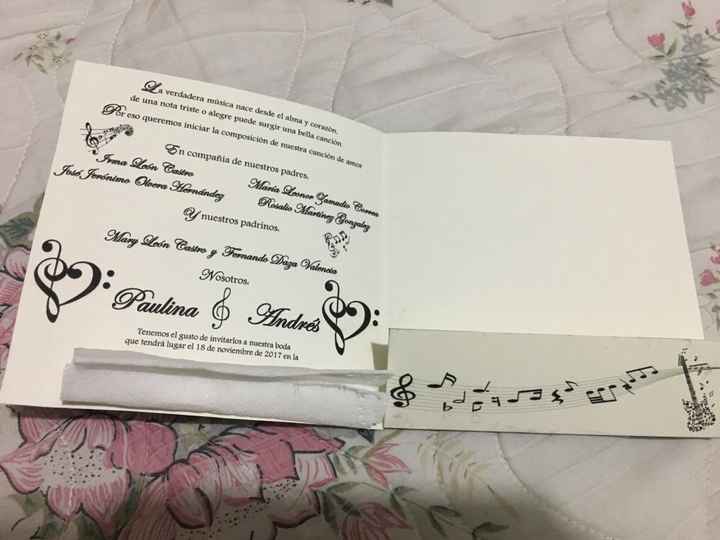 La verdadera música nace desde el alma y corazón,
de una nota triste o alegre puede surgir una bella canción.
Por eso queremos iniciar la composición de nuestra canción de amor
En compañía de nuestros padres.
Irma León Castro
José Jerónimo Olvera Hernández
María Leonor Zamudio Correa
Rosalío Martínez Gonzalez
Y nuestros padrinos.
Mary León Castro y Fernando Daza Valencia
Nosotros.
Paulina Andrés
Tenemos el gusto de invitarlos a nuestra boda
que tendrá lugar el 18 de noviembre de 2017 en la